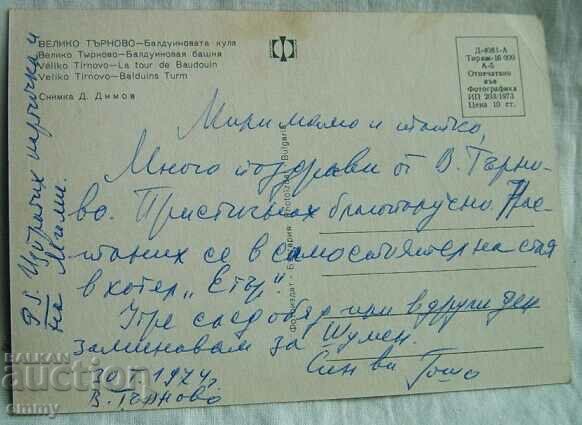 ВЕЛИКО ТЪРНОВО—Балдуиновата кула
Велико Тырново—Балдуиновая башня
Veliko Tirnovo—La tour de Baudouin
Veliko Tirnovo—Balduins Turm
Снимка Д. Димов
Д-4061-А
Тираж-16 000
А-5
Отпечатано
във
Фотографика
ИП 203/1973
Цена 10 ст.
Фотоиздат • България Photoizdat • Bulgaria
Мили мамо и татко,
Много поздрави от В. Търно-
во. Пристигнах благополучно. Нас-
таних се в самостоятелна стая
в хотел „Етър"
Утре след обяд или в други ден
заминавам за Шумен.
30.I.1974г.
В. Търново
Син ви Гошо
P.S. Изпратих картичка и
на
BALKAN
auction
emmy